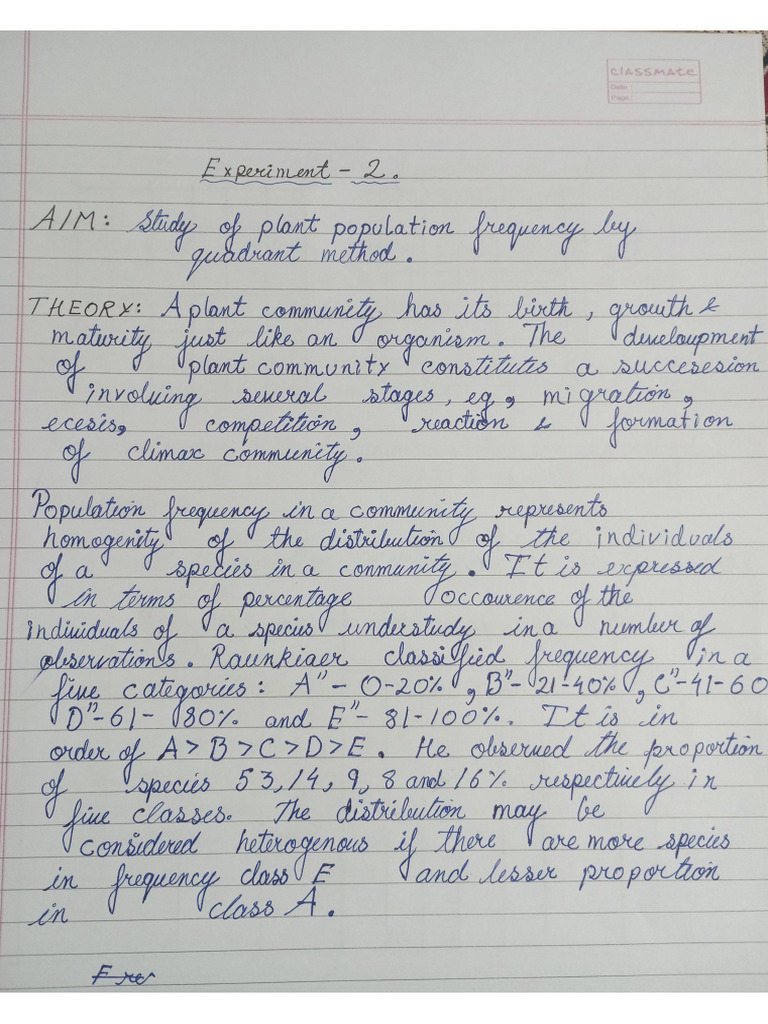 classmate
Date
Page
Experiment - 2.
AIM: Study of plant population frequency by
quadrant method.
THEORY: A plant community has its birth, growth &
maturity just like an organism. The develoupment
of plant community constitutes a succesesion
involving several stages, eg, migration,
ecesis, competition, reaction & formation
of climax community.
Population frequency in a community represents
homogenity of the distribution of the individuals
of a species in a conmunity. It is expressed
in terms of percentage occourence of the
individuals of a species understudy in a number of
observations. Raunkiaer classified frequency in a
five categories: A" - 0-20%, B"- 21-40%, C"-41-60
D"-61- 80% and E"- 81-100%. It is in
order of A > B > C > D > E. He observed the proportion
of species 53, 14, 9, 8 and 16% respectively in
five classes. The distribution may be
considered heterogenous if there are more species
in frequency class E and lesser proportion
in class A.
Fre